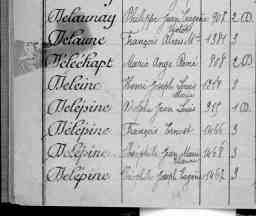 Delaunay Philippe Jean Eugène 908 2 D.
Delaune François Alexis Mie 1981 3
Deléchapt Marie Ange René 908 2 D.
Deleine Henri Joseph Louis 3
Marie
Delépine Jean Louis 1 D.
Delépine François Ernest 1466 3
Delépine Théophile Jean Marie 1468 3
Delépine Théophile Joseph Eugène 1467 3